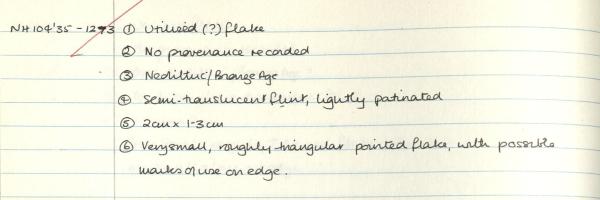 NH104'35 - 1273 ① Utilised (?) flake
② No provenance recorded
③ Neolithic/Bronze Age
④ Semi-translucent flint, lightly patinated
⑤ 2cm x 1.3cm
⑥ Very small, roughly triangular pointed flake, with possible
marks of use on edge.